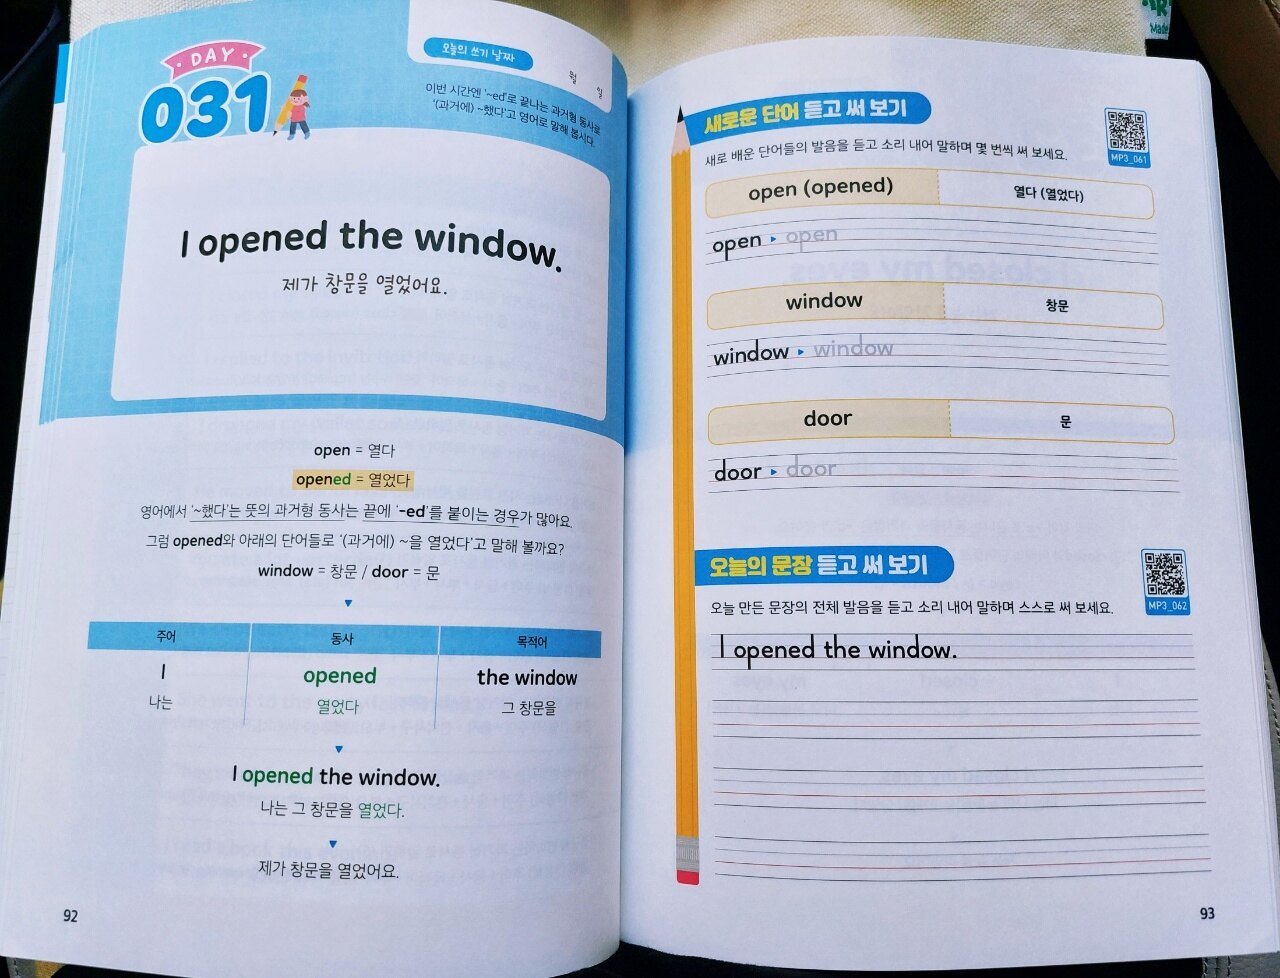 DAY
031
오늘의 쓰기 날짜
월 일
이번 시간엔 '~ed'로 끝나는 과거형 동사로
'(과거에) ~했다'고 영어로 말해 봅시다.
I opened the window.
제가 창문을 열었어요.
open = 열다
opened = 열었다
영어에서 '~했다'는 뜻의 과거형 동사는 끝에 '-ed'를 붙이는 경우가 많아요.
그럼 opened와 아래의 단어들로 '(과거에) ~을 열었다'고 말해 볼까요?
window = 창문 / door = 문
주어 동사 목적어
I opened the window
나는 열었다 그 창문을
I opened the window.
나는 그 창문을 열었다.
제가 창문을 열었어요.
92
새로운 단어 듣고 써 보기
새로 배운 단어들의 발음을 듣고 소리 내어 말하며 몇 번씩 써 보세요.
MP3_061
open (opened) 열다 (열었다)
open ▸ open
window 창문
window ▸ window
door 문
door ▸ door
오늘의 문장 듣고 써 보기
오늘 만든 문장의 전체 발음을 듣고 소리 내어 말하며 스스로 써 보세요.
MP3_062
I opened the window.
93